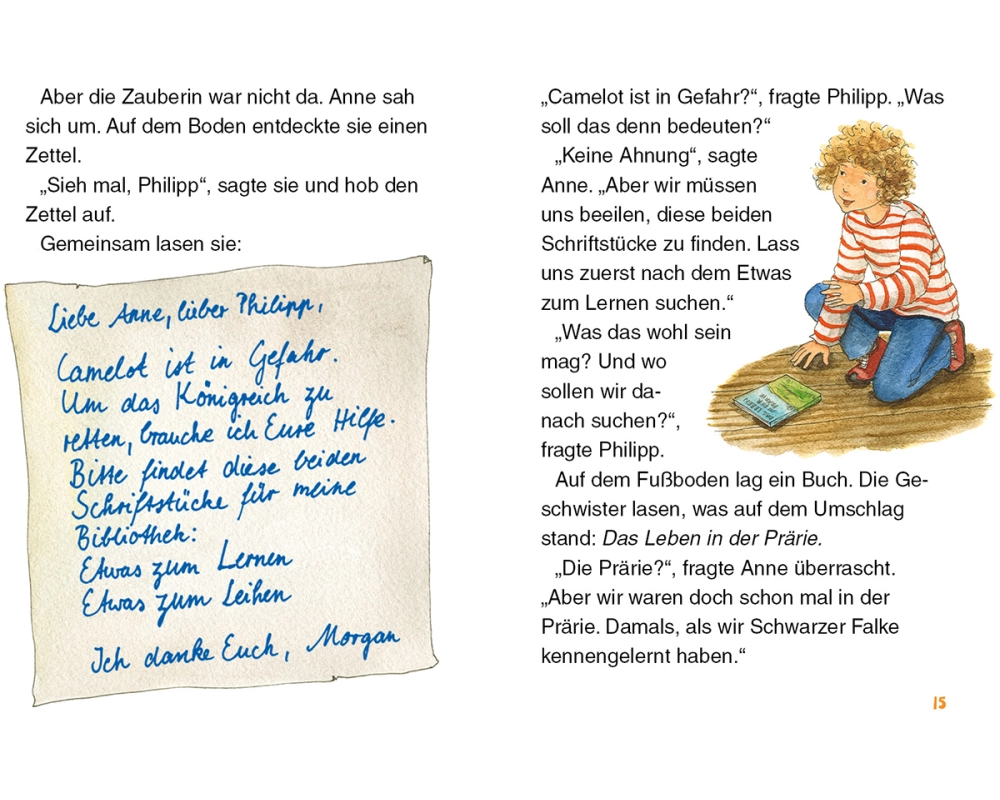 Aber die Zauberin war nicht da. Anne sah
sich um. Auf dem Boden entdeckte sie einen
Zettel.
„Sieh mal, Philipp“, sagte sie und hob den
Zettel auf.
Gemeinsam lasen sie:
Liebe Anne, lieber Philipp,
Camelot ist in Gefahr.
Um das Königreich zu
retten, brauche ich Eure Hilfe.
Bitte findet diese beiden
Schriftstücke für meine
Bibliothek:
Etwas zum Lernen
Etwas zum Leihen
Ich danke Euch, Morgan
„Camelot ist in Gefahr?“, fragte Philipp. „Was
soll das denn bedeuten?“
„Keine Ahnung“, sagte
Anne. „Aber wir müssen
uns beeilen, diese beiden
Schriftstücke zu finden. Lass
uns zuerst nach dem Etwas
zum Lernen suchen.“
„Was das wohl sein
mag? Und wo
sollen wir da-
nach suchen?“,
fragte Philipp.
Auf dem Fußboden lag ein Buch. Die Ge-
schwister lasen, was auf dem Umschlag
stand: Das Leben in der Prärie.
„Die Prärie?“, fragte Anne überrascht.
„Aber wir waren doch schon mal in der
Prärie. Damals, als wir Schwarzer Falke
kennengelernt haben.“
15